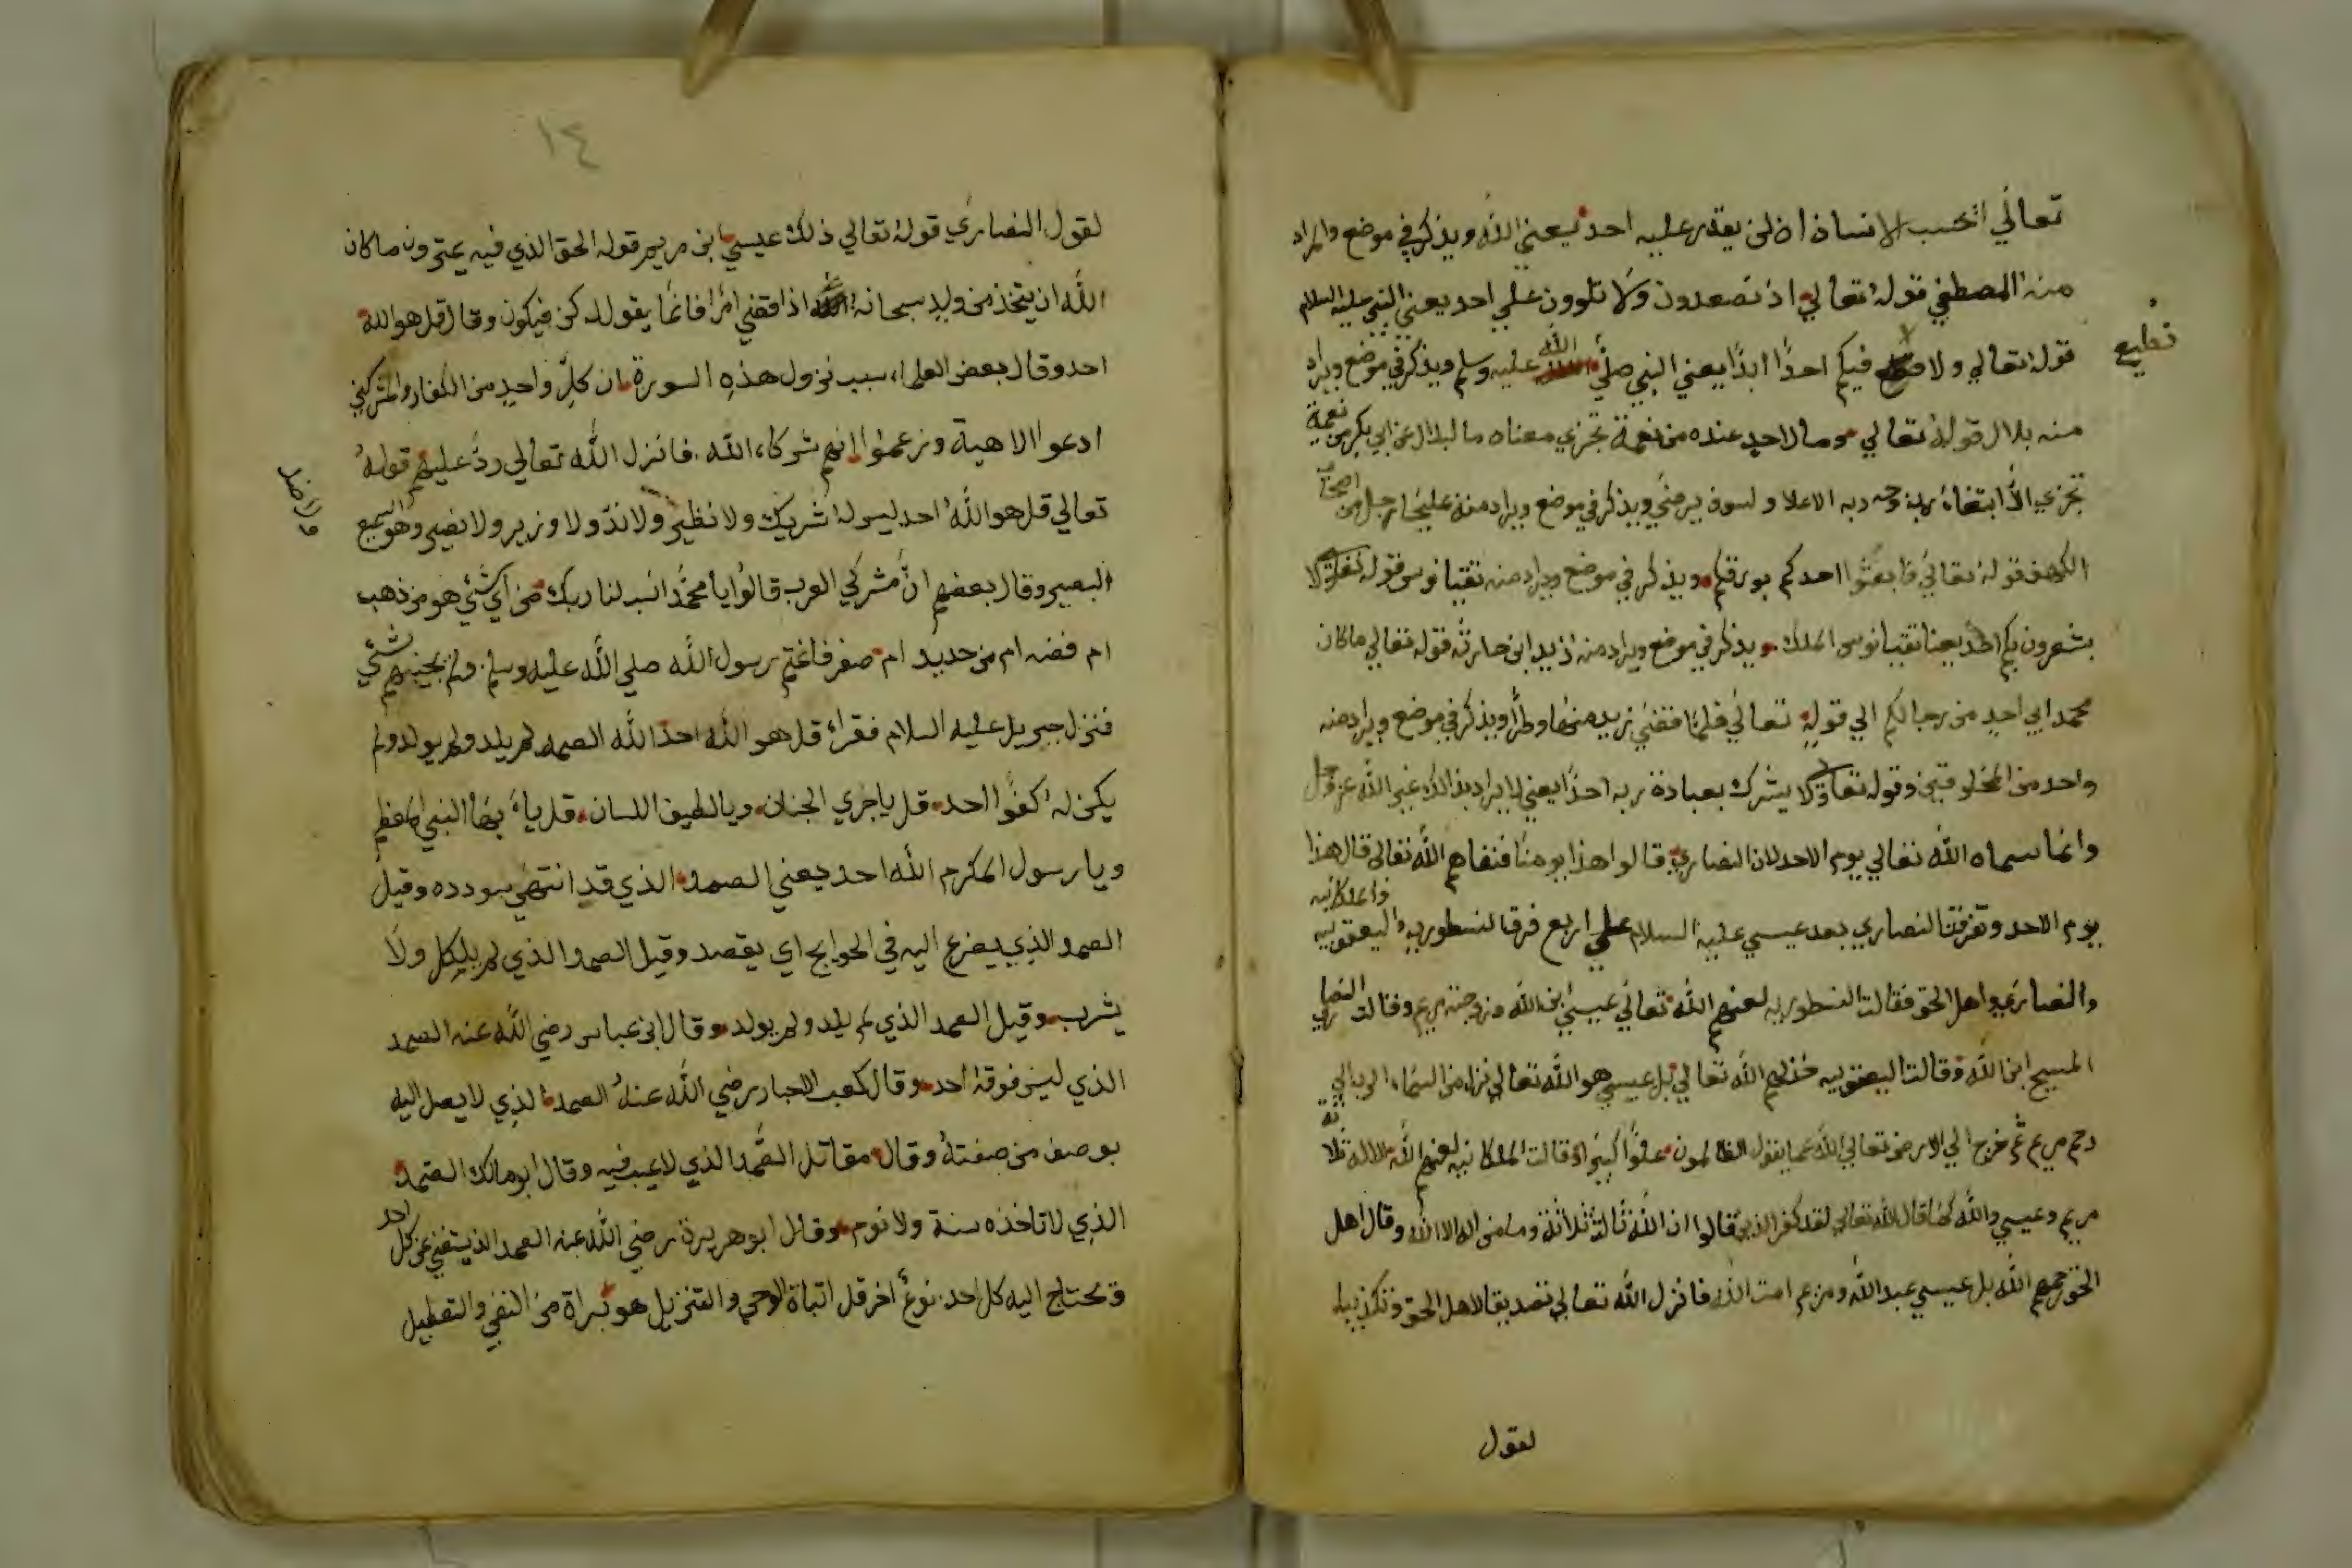 تعالي اتحسب الانسان ان لن يقدر عليه احد يعني الله ويذكر في موضع والمراد
منه المصطفي قوله تعالي اذ تصعدون ولا تلوون علي احد يعني النبي عليه السلام
قوله تعالي ولا فيكم احدًا ابدًا يعني النبي صلي الله عليه وسلم ويذكر في موضع ويراد
نطيع
منه بلال قوله تعالي وما لاحد عنده من نعمة تجزي معناه ما لبلال عن ابي بكر من نعمة
تجزي الا ابتغاء وجه ربه الاعلا ولسوف يرضي ويذكر في موضع ويراد منه رجل من اصحاب
الكهف قوله تعالي فابعثوا احدكم بورقكم ويذكر في موضع ويراد منه تقيانوس قوله تعالي ولا
يشعرن بكم احدًا يعنا تقيانوس الملك ويذكر في موضع ويراد منه زيد ابن حارثه قوله تعالي ماكان
محمد ابي احدٍ من رجالكم الي قوله تعالي فلما قضي زيد منها وطرًا ويذكر في موضع ويراد منه
واحد من المخلوقين وقوله تعالي ولا يشرك بعبادة ربه احدًا يعني لا يراد بذالك غير الله عز وجل
وانما سماه الله تعالي يوم الاحد لان النصاري قالوا هذا يومنا فنفاهم الله تعالي قال هذا
يوم الاحد وتفرقة النصاري بعد عيسي عليه السلام علي اربع فرق النسطوريه واليعقوبيه
والنصاري واهل الحق فقالت النسطوريه لعنهم الله تعالي عيسي ابن الله وزوجته مريم وقالت النصاري
المسيح ابن الله وقالت اليعقوبيه خذلهم الله تعالي بل عيسي هو الله تعالي نزل من السماء الدنيا الي
رحم مريم ثم خرج الي الارض تعالي الله عما يقول الظالمون علوًا كبيرًا وقالت الملكانيه لعنهم الله الاله ثلاثه
مريم وعيسي والله كما قال الله تعالي لقد كفر الذين قالوا ان الله ثالث ثلاثة وما من اله الا الله وقال اهل
الحق رحمهم الله بل عيسي عبد الله ومريم امت الله فانزل الله تعالي تصديقا لاهل الحق وتكذيبا
لقول
١٤
لقول النصاري قوله تعالي ذلك عيسي ابن مريم قوله الحق الذي فيه يمترون ماكان
الله ان يتخذ من ولد سبحانه اذا قضي امرا فانما يقول له كن فيكون وقال قل هو الله
احد وقال بعض العلماء سبب نزول هذه السورة ان كل واحد من الكفار والمشركين
ادعوا الاهية وزعموا انهم شركاء الله فانزل الله تعالي ردً عليهم قوله
تعالي قل هو الله احد ليس له شريك ولا نظير ولا ندّ ولا وزير ولا نصير وهو السميع
البصير وقال بعضهم انّ مشركي العرب قالوا يا محمد انسب لنا ربك من اي شئي هو من ذهب
ام فضه ام من حديد ام صفر فاغتم رسول الله صلي الله عليه وسلم ولم يجبهم شئي
فنزل جبريل عليه السلام فقراء قل هو الله احد الله الصمد لم يلد ولم يولد ولم
يكن له كفوًا احد قل يا جري الجنان ويا لطيف اللسان قل يا ايها النبي المعظم
ويا رسول المكرم الله احد يعني الصمد الذي قد انتهي سودده وقيل
الصمد الذي يضرع اليه في الحوايج اي يقصد وقيل الصمد الذي لم ياكل ولا
يشرب وقيل الصمد الذي لم يلد ولم يولد وقال ابن عباس رضي الله عنه الصمد
الذي ليس فوقه احد وقال كعب الاحبار رضي الله عنه الصمد الذي لا يصل اليه
بوصف من صفته وقال مقاتل الصّمد الذي لا عيب فيه وقال ابو مالك الصمد
الذي لا تاخذه سنة ولا نوم وقال ابو هريرة رضي الله عنه الصمد الذي يستغني عن كل احد
ومحتاج اليه كل احد نوعٌ اخر قل اثباة الوحي والتنزيل هو براة من النفي والتعطيل